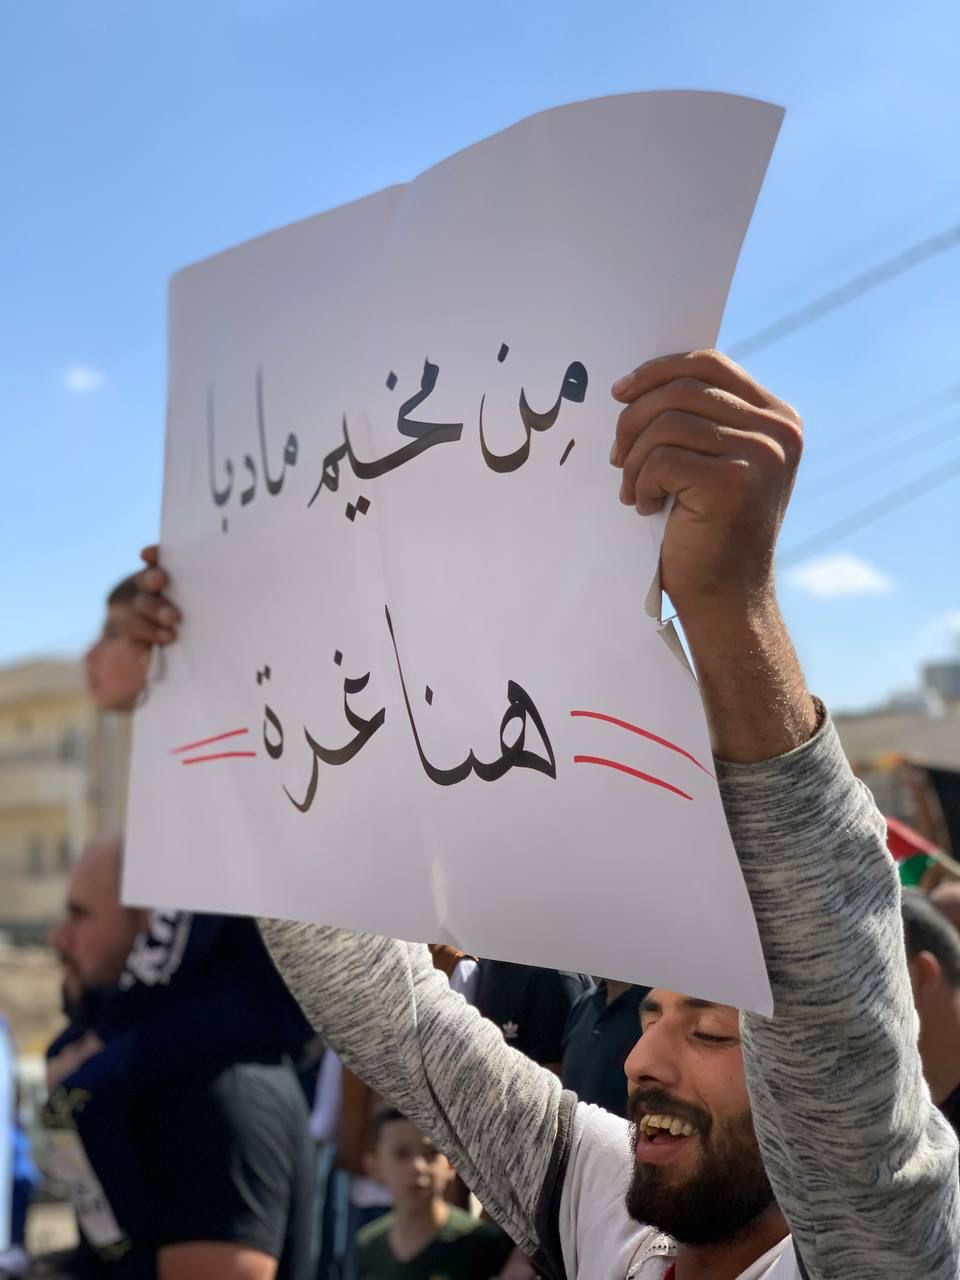 مِن مخيم مادبا
هنا غرة